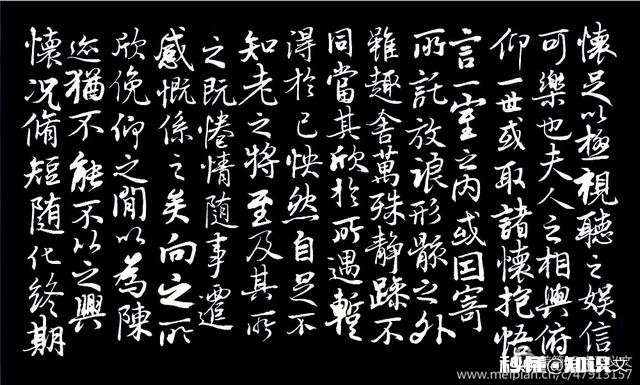 懷足以極視聽之娛信
可樂也夫人之相與俯
仰一世或取諸懷抱悟
言一室之內或因寄
所託放浪形骸之外
雖趣舍萬殊静躁不
同當其欣於所遇暫
得於己怏然自足不
知老之將至及其所
之既惓情隨事遷
感慨係之矣向之所
欣俛仰之閒以為陳
迹猶不能不以之興
懷況脩短随化終期
秒懂@知识
www.meipian.cn/c/47913157